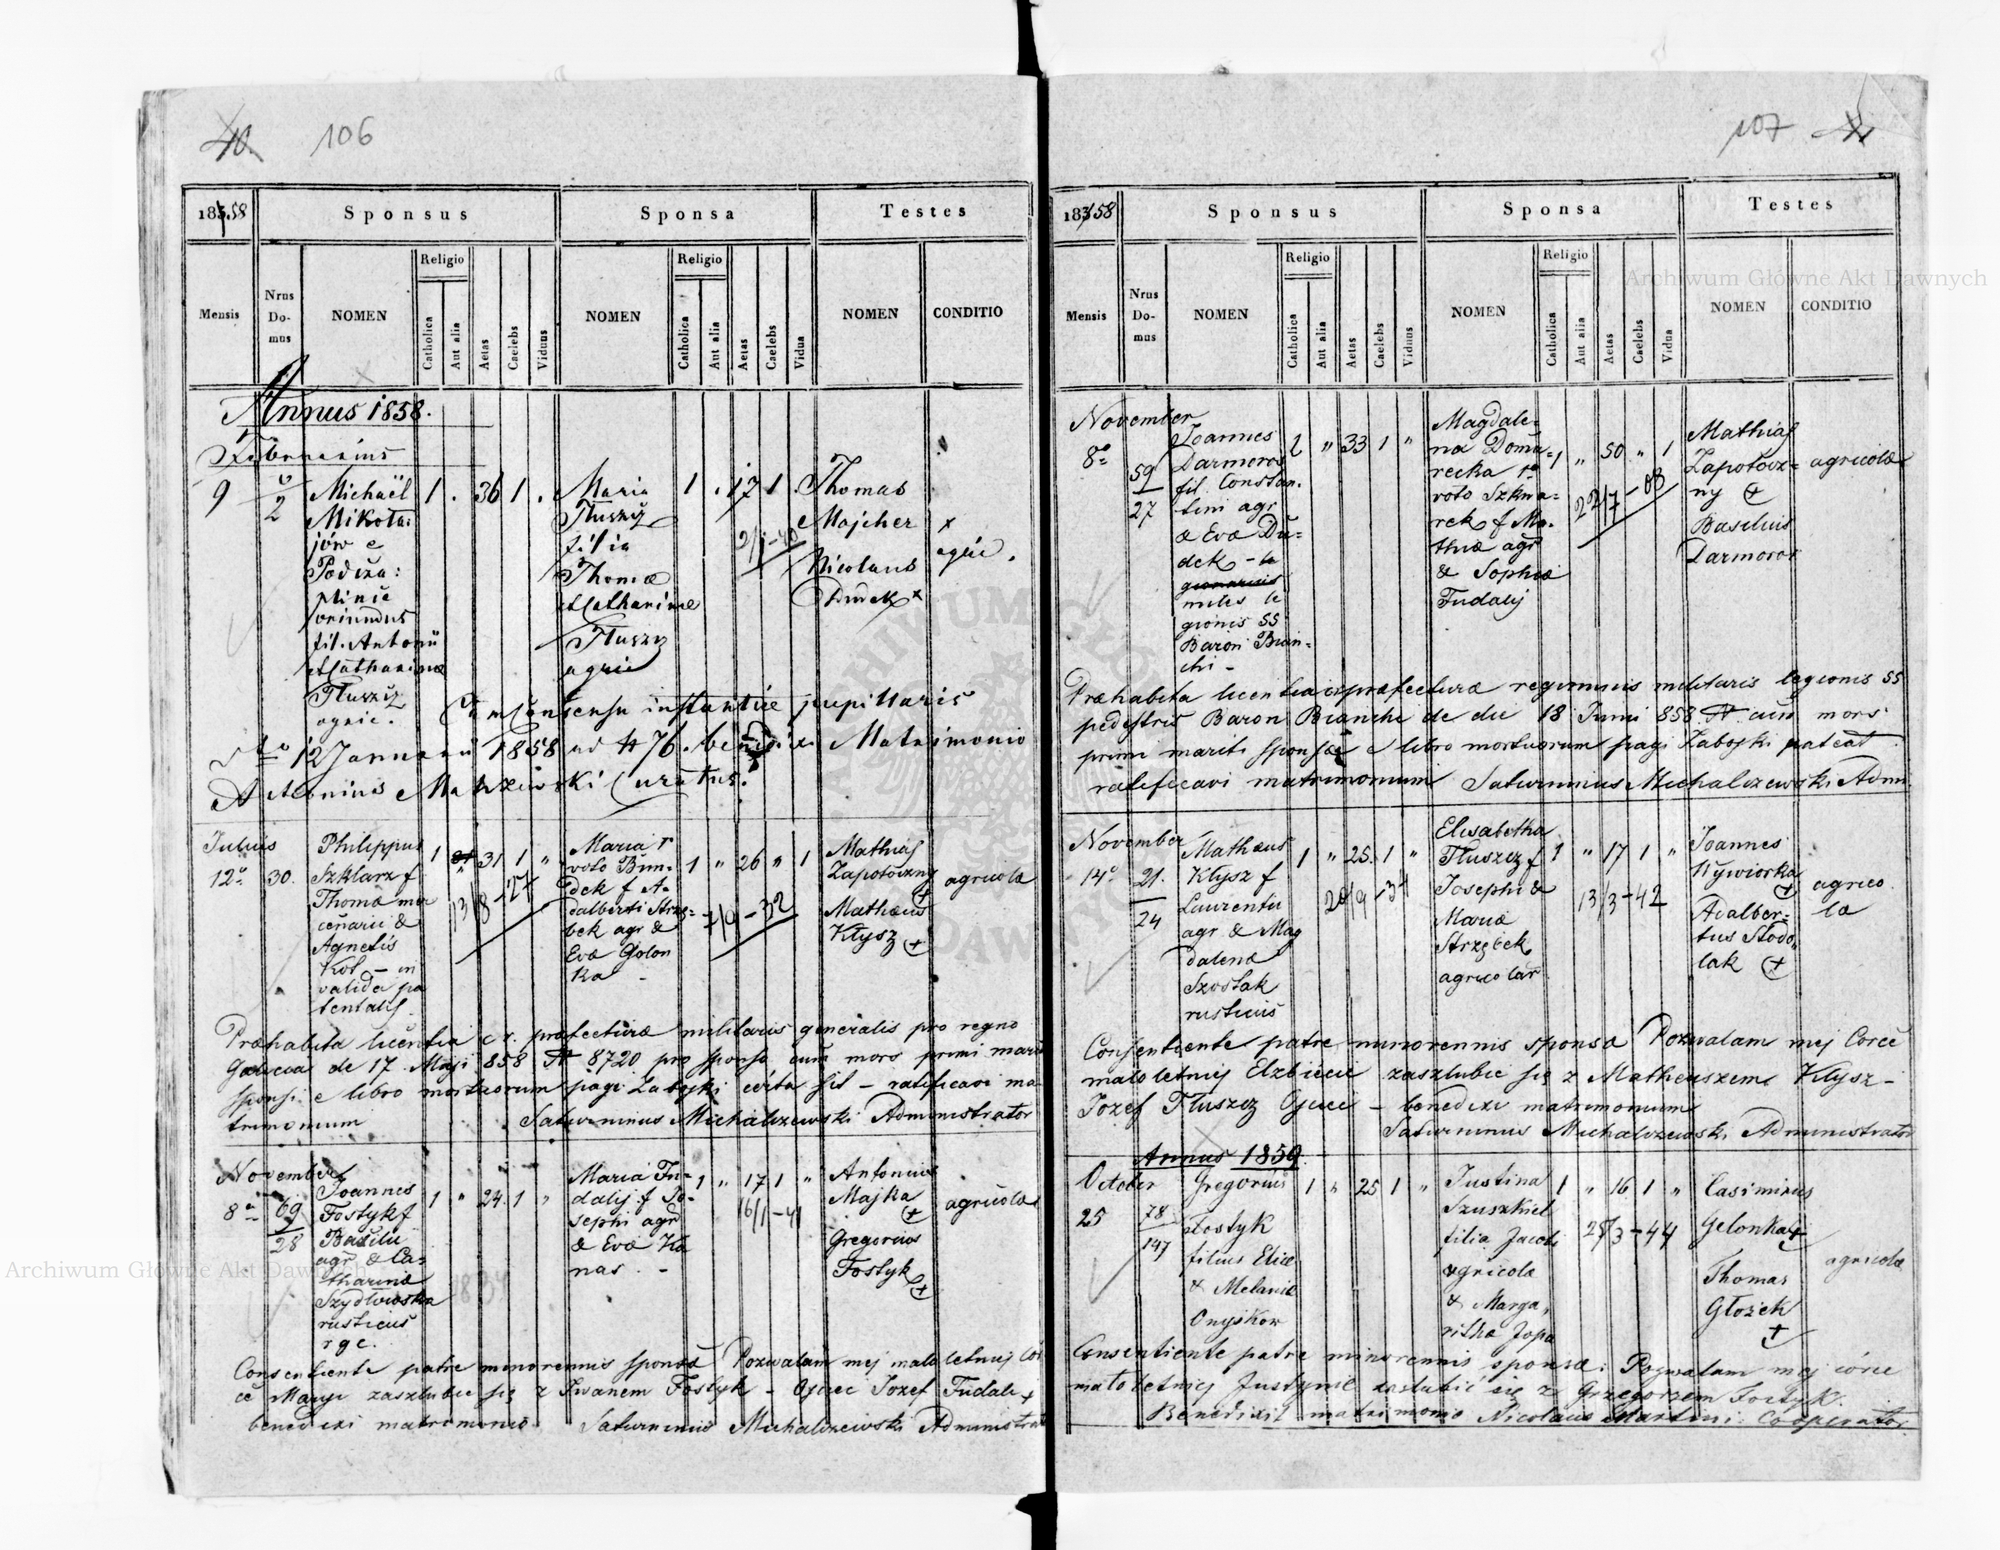 106
1858
Sponsus
Sponsa
Testes
Mensis
Nrus Do-mus
NOMEN
Religio
Catholica
Aut alia
Aetas
Caelebs
Viduus
NOMEN
Religio
Catholica
Aut alia
Aetas
Caelebs
Vidua
NOMEN
CONDITIO
Annus 1858.
Februarius
9
2
Michaël
Mikoła:
jów e
Podcza:
oriundus
fil. Antonii
et Catharinæ
Tłuszcz
agric.
1 . 36 1 .
Maria
Tłuszcz
filia
Thomæ
et Catharinæ
Tłuszcz
agric
1 . 17 1 .
Thomas
Majcher x
Nicolaus
Dudek x
agric.
Cum Consensu instantiæ pupillaris
12 Januarii 1858 ad N 76. benedixi Matrimonio
Antonius Curatus.
Julius
12º
30.
Philippus
Szklarz f
Thomæ mer
cenarii &
Agnetis
Kot - in
valida pa
tentalis.
1 " 31 1 "
13/8-27
Maria 1º
voto Bun-
dek f A-
dalberti Strzę-
bek agr &
Eva Golon
ka -
1 " 26 " 1
7/9-32
Mathias
Zapotoczny
+
Mathæus
Kłysz +
agricolæ
Præhabita licentia c. r. præfecturæ militaris generalis pro regno
Galiciæ de 17 Maji 858 N 8720 pro sponso cum mors primi mariti
sponsi e libro mortuorum pagi Zabojki certa sit - ratificavi ma
trimonium Saturninus Michalczewski Administrator
November
8º
69
28
Joannes
Fostyk f
Basilii
agr & Ca-
tharinæ
Szydłowska
rusticus
1 " 24 1 "
Maria Fu-
dalij f Jo-
sephi agr
& Eva Ka
nas. -
1 " 17 1 "
16/1-41
Antonius
Majka
+
Gregorius
Fostyk
+
agricolæ
Consentiente patre minorennis sponsæ Pozwalam mej małoletniej Cór
ce Maryi zaszlubic się z Iwanem Fostyk - Ojciec Jozef Fudali +
benedixi matrimonio Saturninus Michalczewski Administrator
107
1858
Sponsus
Sponsa
Testes
Mensis
Nrus Do-mus
NOMEN
Religio
Catholica
Aut alia
Aetas
Caelebs
Viduus
NOMEN
Religio
Catholica
Aut alia
Aetas
Caelebs
Vidua
NOMEN
CONDITIO
November
8º
59
27
Joannes
Darmoros
fil. Constan-
tini agr
& Eva Du-
dek -
miles le
gionis 55
Baron Bian-
chi -
1 " 33 1 "
Magdale-
na Doma-
recka 1º
voto Szkwa-
rek f Ma-
thiæ agr
& Sophiæ
Fudalij
1 " 50 " 1
22/7-08
Mathias
Zapotocz-
ny +
Basilius
Darmoros
agricolæ
Præhabita licentia c.r. præfecturæ regiminis militaris legionis 55
pedestris Baron Bianchi de die 18 Junii 858 N. cum mors
primi mariti sponsæ e libro mortuorum pagi Zabojki pateat
ratificavi matrimonium Saturninus Michalczewski Admi
November
14º
21.
24
Mathæus
Kłysz f
Laurentii
agr & Mag
dalenæ
Szostak
rusticus
1 " 25 1 "
20/9-34
Elisabetha
Tłuszcz f
Josephi &
Mariæ
Strzębek
agricolar
1 " 17 1 "
13/3-42
Joannes
Wywiorka
+
Adalber-
tus Stodo-
lak +
agrico
læ
Consentiente patre minorennis sponsæ Pozwalam mej Corce
małoletniej Elzbiecie zaszlubic się z Matheuszem Kłysz -
Jozef Tłuszcz Ojciec - benedixi matrimonium
Saturninus Michalczewski Administrator
Annus 1859.
October
25
78
147
Gregorius
Fostyk
filius Eliæ
& Melaniæ
Onyskow
1 " 25 1 "
Justina
Szuszkiel
filia Jacobi
agricolæ
& Marga-
rithæ Jopa
1 " 16 1 "
25/3-44
Casimirus
Gelonka +
Thomas
Głozek
+
agricolæ
Consentiente patre minorennis sponsæ: Pozwalam mej córce
małoletniej Justynie zaslubić się z Grzegorzem Fostyk.
Benedixit matrimonio Nicolaus Martini Cooperator
Archiwum Główne Akt Dawnych
Archiwum Główne Akt Dawnych